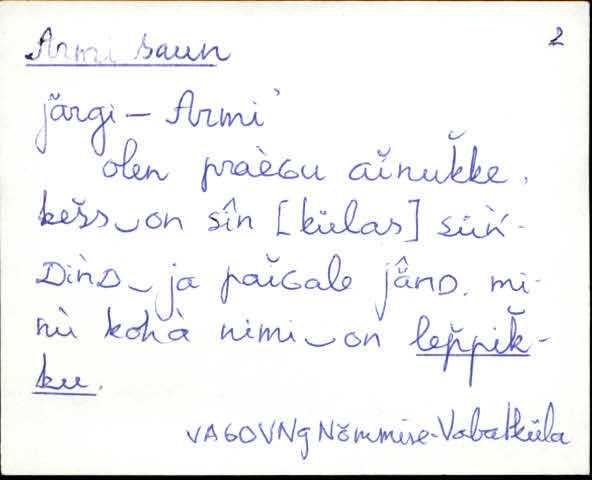 Armi saun 2
järgi – Armi`
olen praèGu aĭnuk̆ke.
kes̆s‿on sîn [külas] süǹ-
DìǹD‿ja paĭGale jâ̈nD. mi-
nù kohà nimi‿on lep̆pik̆-
ku.
VAGOVNg Nõmmise-Vabatküla